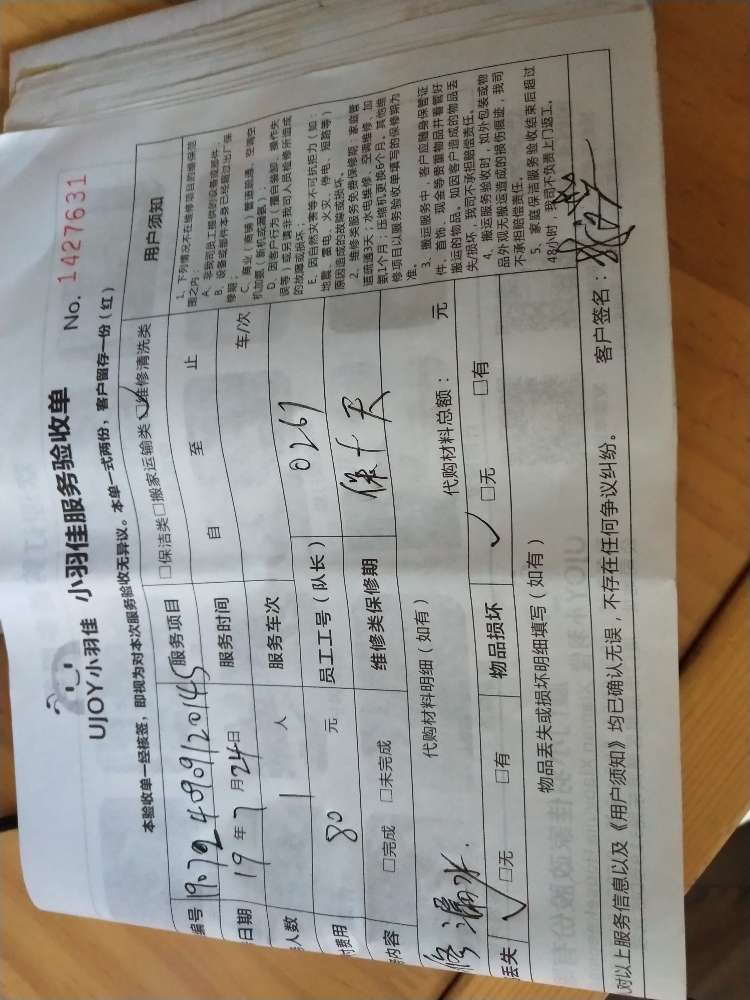 UJOY小羽佳 小羽佳服务验收单 No. 1427631
本验收单一经核签，即视为对本次服务验收无异议。本单一式两份，客户留存一份（红）
编号 19.724090920145 服务项目 □保洁类□搬家运输类☑维修清洗类
日期 19年7月24日 服务时间 自 至 止
人数 1 人 服务车次 车/次
费用 80 元 员工工号（队长） 0267
内容 □完成 □未完成 维修类保修期 保十天
修漏水. 代购材料明细（如有） 代购材料总额： 元
丢失 ☑无 □有 物品损坏 ☑无 □有
物品丢失或损坏明细填写（如有）
对以上服务信息以及《用户须知》均已确认无误，不存在任何争议纠纷。 客户签名：
用户须知
1、下列情况不在维修项目的维保范
围之内：
A、非我司员工提供的设备或部件；
B、设备或部件本身已经超过出厂保
修期；
C、商业（商铺）管道疏通、空调空
机加氨（新机或漏氨）；
D、因客户行为（擅自装卸、操作失
误等）或另请非我司人员检修所造成
的故障或损坏；
E、因自然灾害等不可抗拒力（如：
地震、雷电、火灾、停电、短路等）
原因造成的故障或损坏。
2、维修类服务免费保修期：家庭管
道疏通3天；水电维修、空调维修、加
氨1个月；压缩机更换6个月。其他维
修项目以服务验收单填写的保修期为
准。
3、搬运服务中，客户应随身保管证
件、首饰、现金等贵重物品并看管好
搬运的物品。如因客户造成的物品丢
失/损坏，我司不承担赔偿责任。
4、搬运服务验收时，如外包装或物
品外观无搬运造成的损伤痕迹，我司
不承担赔偿责任。
5、家庭保洁服务验收结束后超过
48小时，我司不负责上门返工。